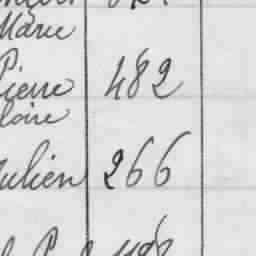 Marie
Pierre 482
loire
Julien 266